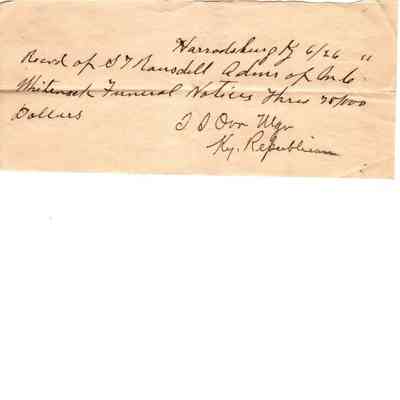 Harrodsburg Ky 6/26 "
Recvd of S T Ransdell Admr of M C
Whitenack Funeral Notices Three 70/100
Dollars
Orr Mgr
Ky. Republican